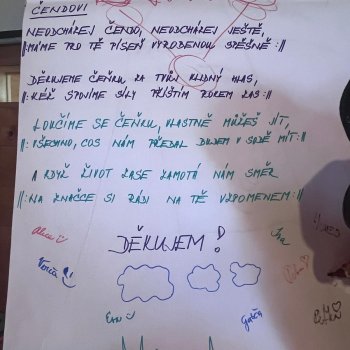 ČENDOVI
NEODCHÁZEJ ČENDO, NEODCHÁZEJ JEŠTĚ,
‖: MÁME PRO TĚ PÍSEŇ VYROBENOU SPĚŠNĚ :‖
DĚKUJEME ČEŇKU ZA TVŮJ KLIDNÝ HLAS,
‖: KÉŽ SPOJÍME SÍLY PŘÍŠTÍM ROKEM ZAS :‖
LOUČÍME SE ČEŇKU, VLASTNĚ MŮŽEŠ JÍT,
‖: VŠECHNO, COS NÁM PŘEDAL BUDEM V SOBĚ MÍT :‖
A KDYŽ ŽIVOT ZASE ZAMOTÁ NÁM SMĚR
‖: NA ZNAČCE SI RÁDI NA TĚ VZPOMENEM :‖
DĚKUJEM!
Verča